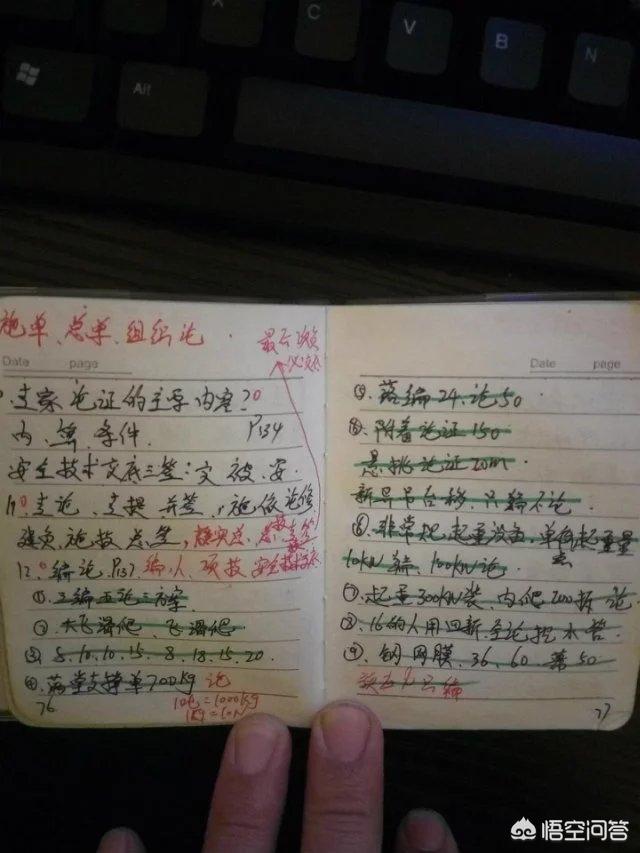 C
V
B
N
Alt
施单、总单、组织论
最后
Date page
专家论证的主要内容?
内、算、条件. P134
安全技术交底三签:交、被、安.
11、专论、专提、并签、施依论修
建负、施技、总签,
12、编论.P137.编人、项技、安全技术交底
①三编五论三方案
②大飞滑爬、飞滑爬
③5.10.10.15.8.18.15.20.
④满堂支撑单700kg 论
1t=1000kg
1kg=10N
76
Date page
⑤、落编24、论50
⑥、附着论证150
悬挑论证20m
新异吊台移、只编不论.
⑥、非常规、起重设备、单件起重量
10kN编、100kN论.
⑦、起重300kN装、内爬200拆论
⑧、16的人用四新、全论挖水苦
⑨、钢、网、膜、36、60 幕50
预应力只编
77
悟空问答